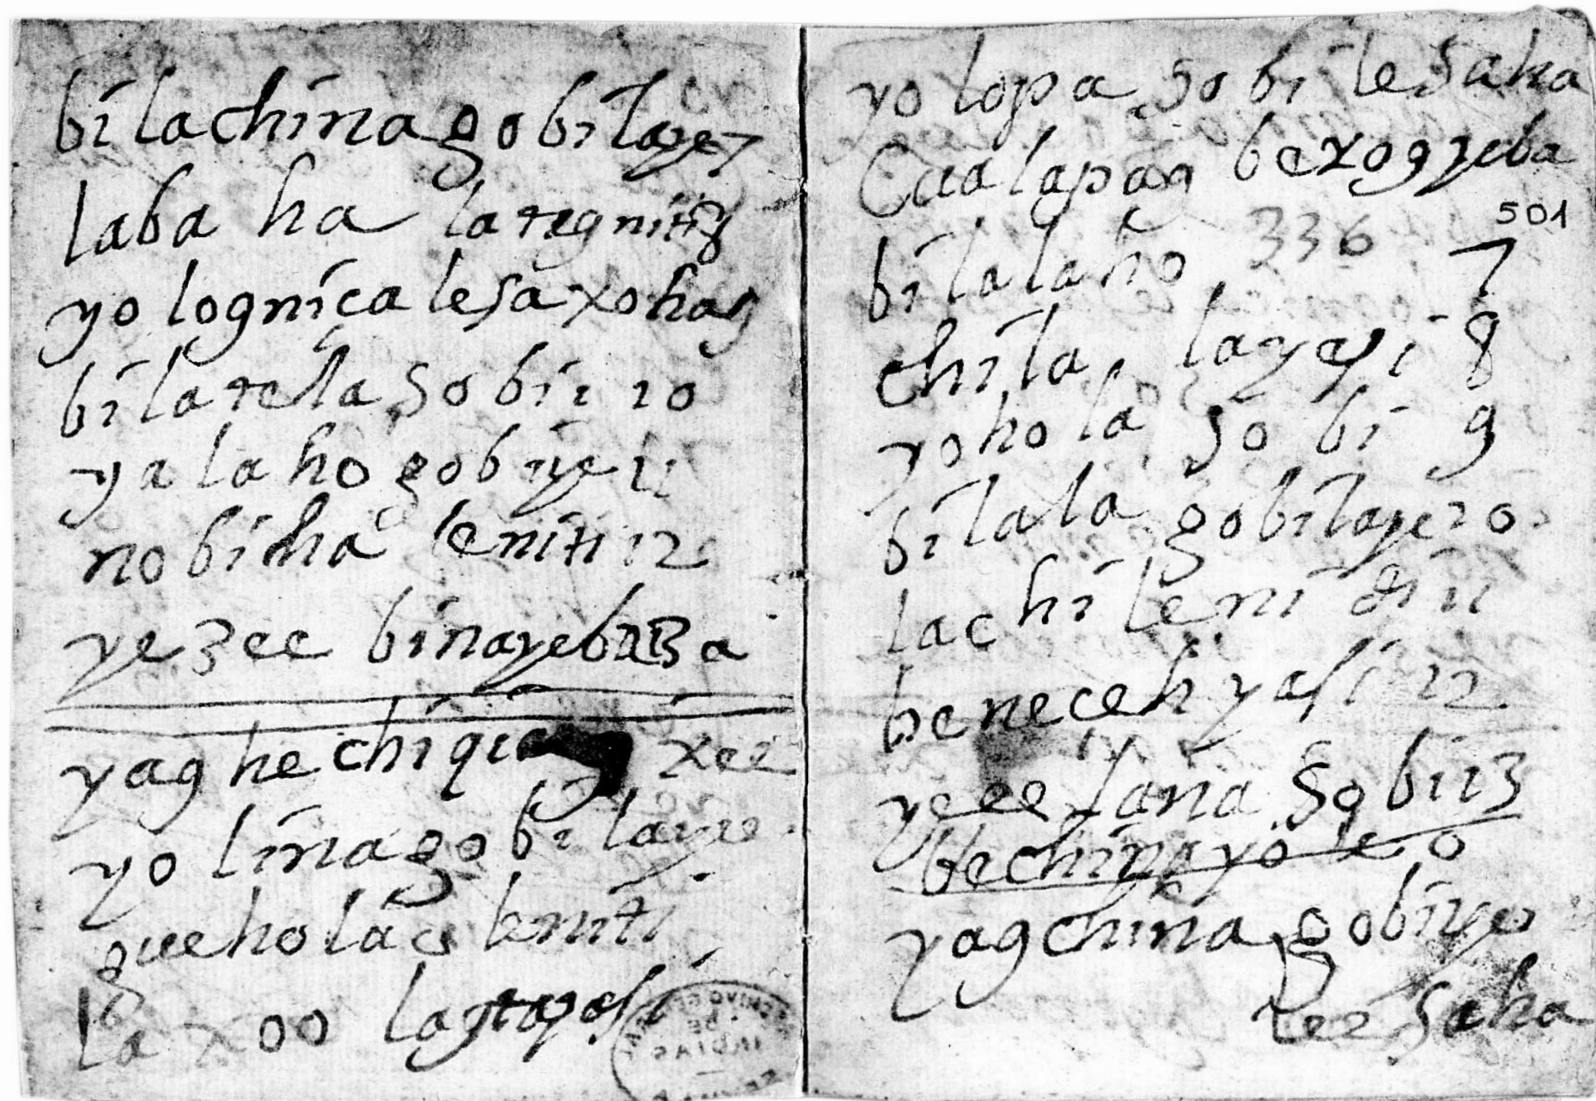 bilachinagobilaye7
laba ha lategniti8
yolognicalesaxohag
bilatela sobii 10
yalaho gobiye 11
nobihha leniti 12
yezee binayeba13a
yaghechiqia xee
yo lina gobilaye
gueholac leniti
la xoo lagtapasi
yo lopa sobi lesaha
Caalapag bexogyeba
501
bilalaho 336 7
chila layasi 8
yohola sobi 9
bilala gobilaye 10
lachileni di 11
benececihyasi 12
yeee lana sobi 13
bechinayo le o
yagchina gobiye
lee saha
ARCHIVO GENERAL DE INDIAS